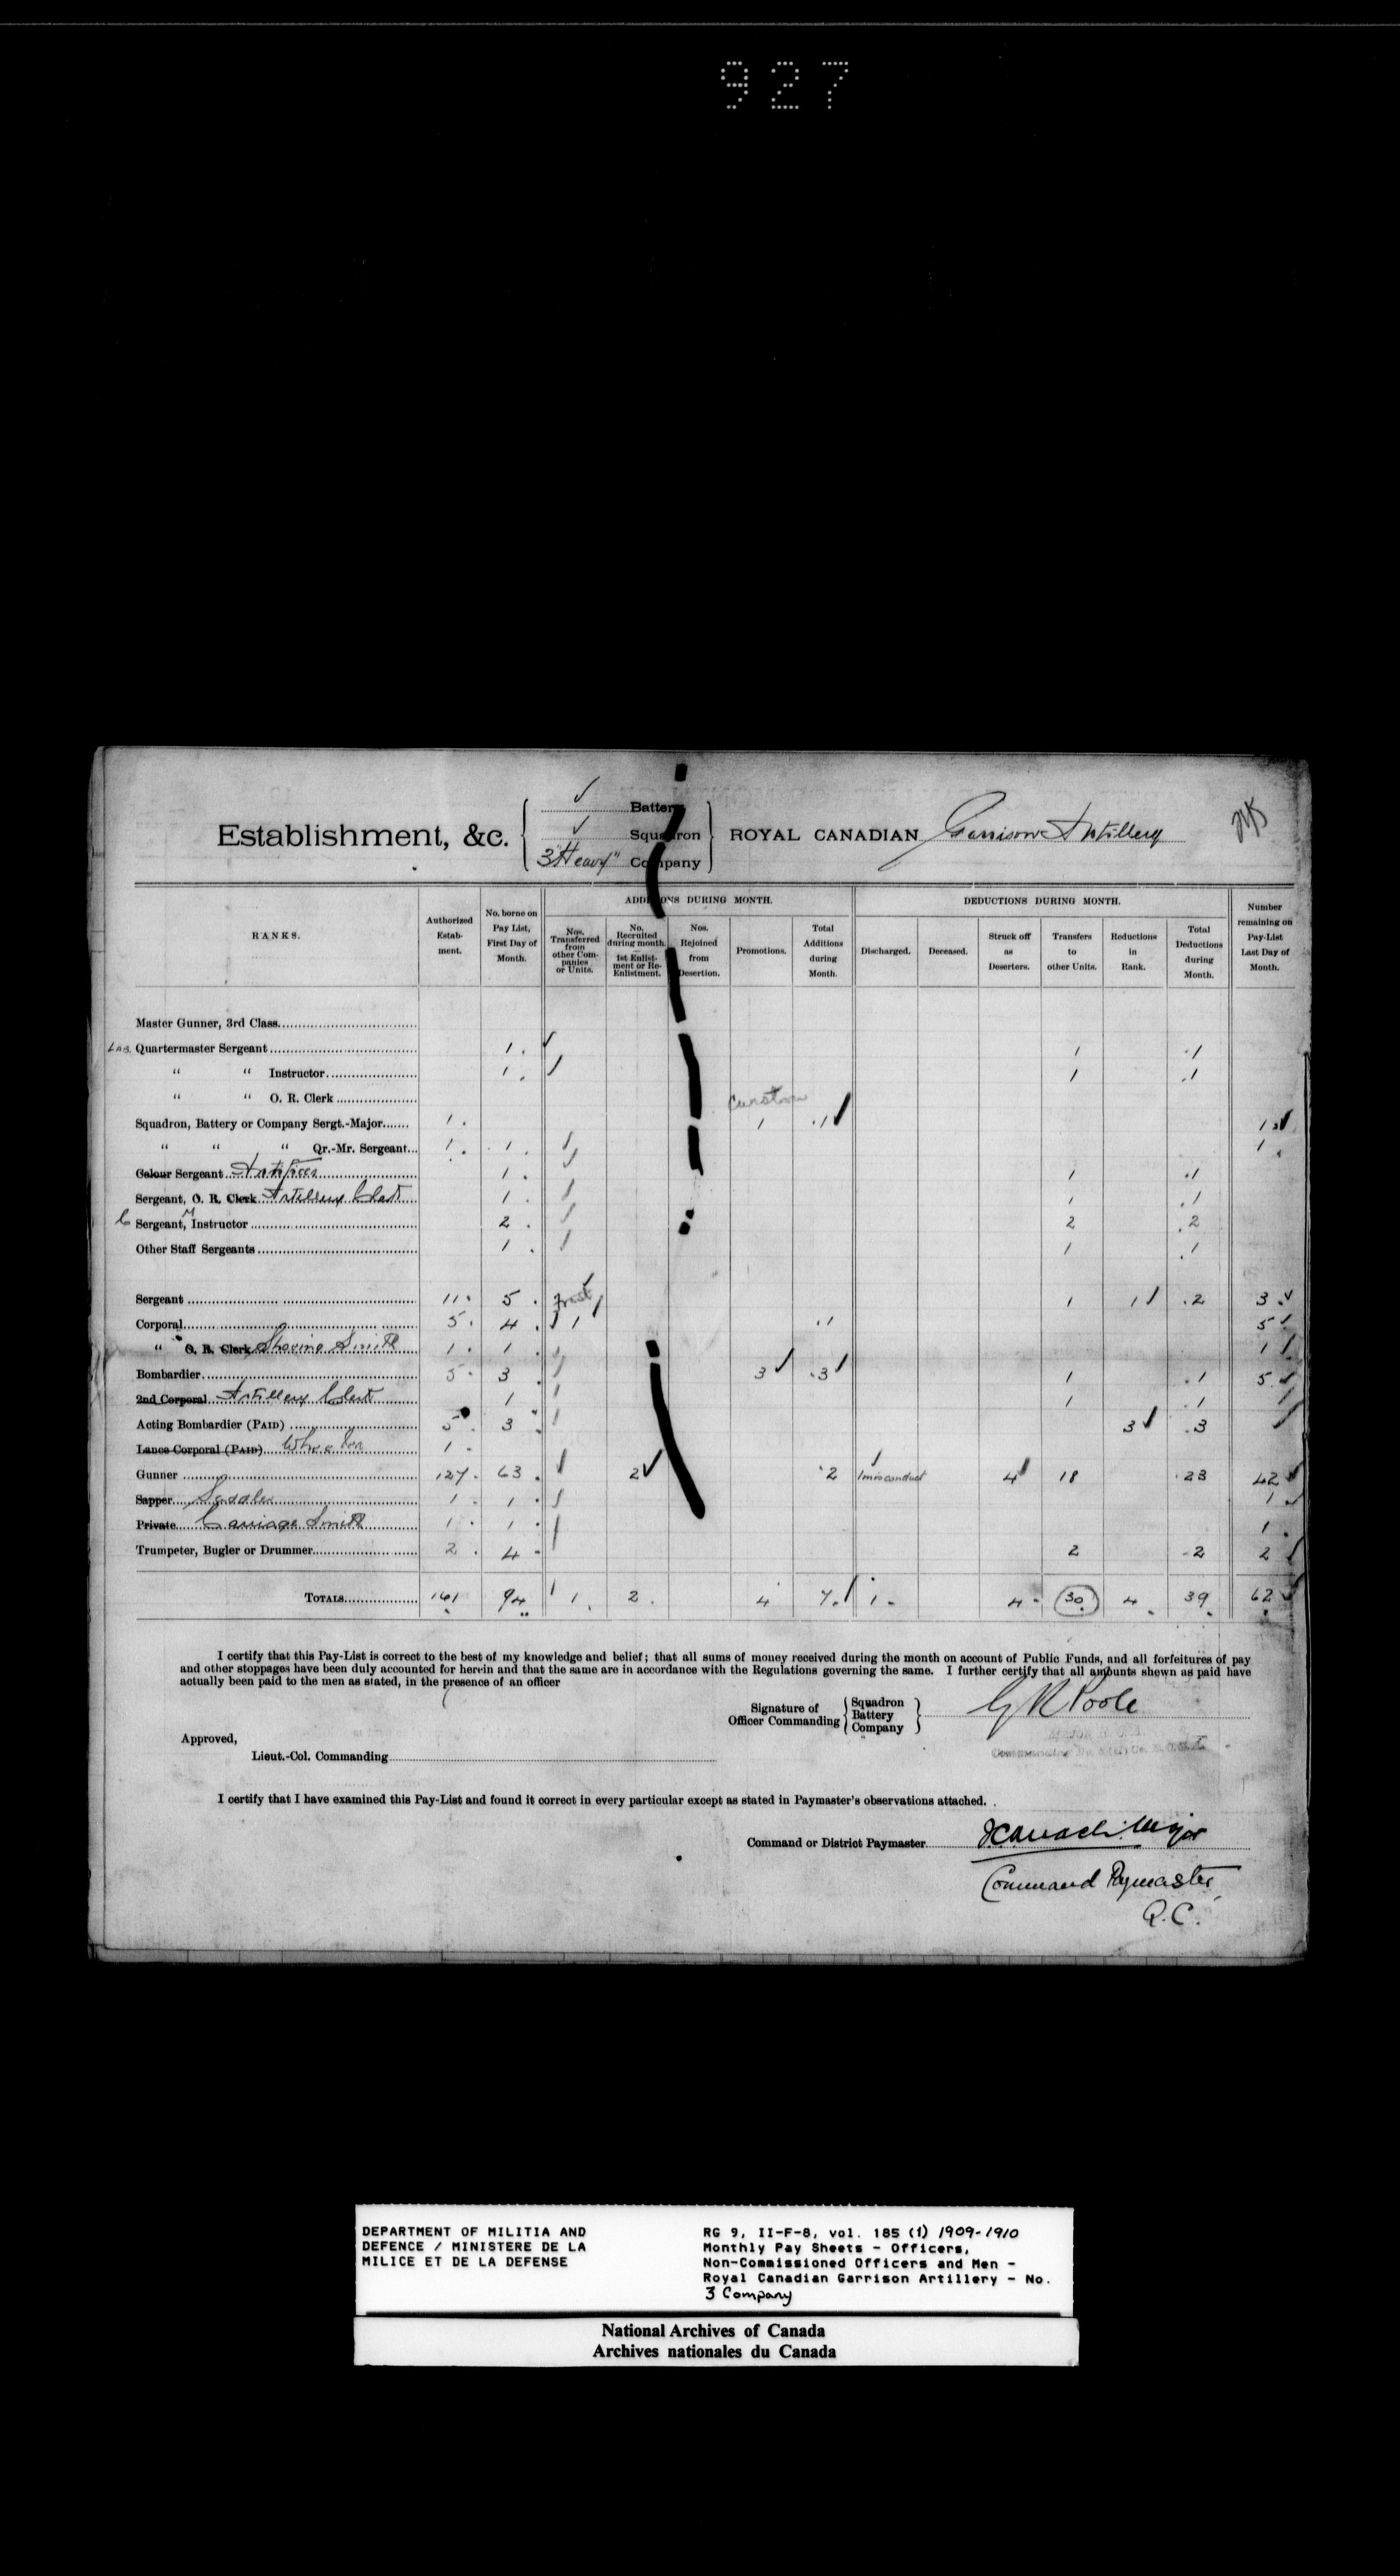 927
Establishment, &c. { Battery
Squadron
3 "Heavy" Company } ROYAL CANADIAN Garrison Artillery
RANKS. Authorized Establishment. No. borne on Pay List, First Day of Month. ADDITIONS DURING MONTH. DEDUCTIONS DURING MONTH. Number remaining on Pay-List Last Day of Month.
Nos. Transferred from other Companies or Units. No. Recruited during month. 1st Enlistment or Re-Enlistment. Nos. Rejoined from Desertion. Promotions. Total Additions during Month. Discharged. Deceased. Struck off as Deserters. Transfers to other Units. Reductions in Rank. Total Deductions during Month.
Master Gunner, 3rd Class
Quartermaster Sergeant 1 1 1
" " Instructor 1 1 1
" " O. R. Clerk
Squadron, Battery or Company Sergt.-Major 1 1 1 1
" " " Qr.-Mr. Sergeant 1 1 1
Colour Sergeant Artificer 1 1 1
Sergeant, O. R. Clerk Artillery Clerk 1 1 1
Sergeant, Instructor 2 2 2
Other Staff Sergeants 1 1 1
Sergeant 11 5 1 1 2 3
Corporal 5 4 1 1 5
" O. R. Clerk Shoeing Smith 1 1 1
Bombardier 5 3 3 3 1 1 5
2nd Corporal Artillery Clerk 1 1 1
Acting Bombardier (PAID) 5 3 3 3
Lance Corporal (PAID) Wheeler 1
Gunner 127 63 2 2 1 misconduct 4 18 23 42
Sapper Saddler 1 1 1
Private Carriage Smith 1 1 1
Trumpeter, Bugler or Drummer 2 4 2 2 2
TOTALS 161 94 1 2 4 7 1 4 30 4 39 62
I certify that this Pay-List is correct to the best of my knowledge and belief; that all sums of money received during the month on account of Public Funds, and all forfeitures of pay
and other stoppages have been duly accounted for herein and that the same are in accordance with the Regulations governing the same. I further certify that all amounts shewn as paid have
actually been paid to the men as stated, in the presence of an officer
Signature of Officer Commanding { Squadron
Battery
Company } G R Poole
Approved,
Lieut.-Col. Commanding
I certify that I have examined this Pay-List and found it correct in every particular except as stated in Paymaster's observations attached.
Command or District Paymaster Major
Command Paymaster
Q.C.
DEPARTMENT OF MILITIA AND
DEFENCE / MINISTERE DE LA
MILICE ET DE LA DEFENSE
RG 9, II-F-8, vol. 185 (1) 1909-1910
Monthly Pay Sheets - Officers,
Non-Commissioned Officers and Men -
Royal Canadian Garrison Artillery - No.
3 Company
National Archives of Canada
Archives nationales du Canada